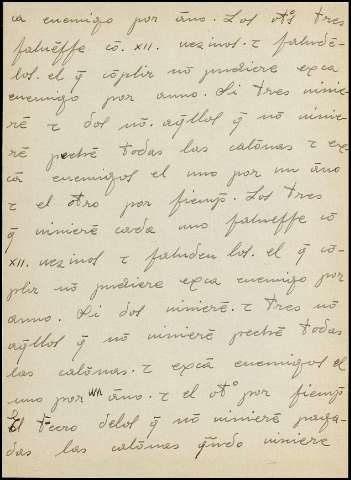 cā enemigo por āno. Los otºs tres
salueſſe cō. XII. uezinos. τ saludē-
los. el q̄ cōplir nō pudiere exca
enemigo por anno. Si tres uinie-
rē τ dos nō. aq̄llos q̄ nō uinie-
rē pechē todas las calōnas τ ex
cā enemigos el uno por un āno
τ el otro por siempº. Los tres
q̄ uinierē cada uno salueſſe cō
XII. uezinos τ saluden los. el q̄ cō-
plir nō pudiere exca enemigo por
anno. Si dos uinierē. τ tres nō
aq̄llos q̄ nō uinierē pechē todas
las calōnas. τ excā enemigos el
uno por un āno. τ el otº por siempº
El tercero delos q̄ nō uinierē paga-
das las calōnas q̄ndo uiniere